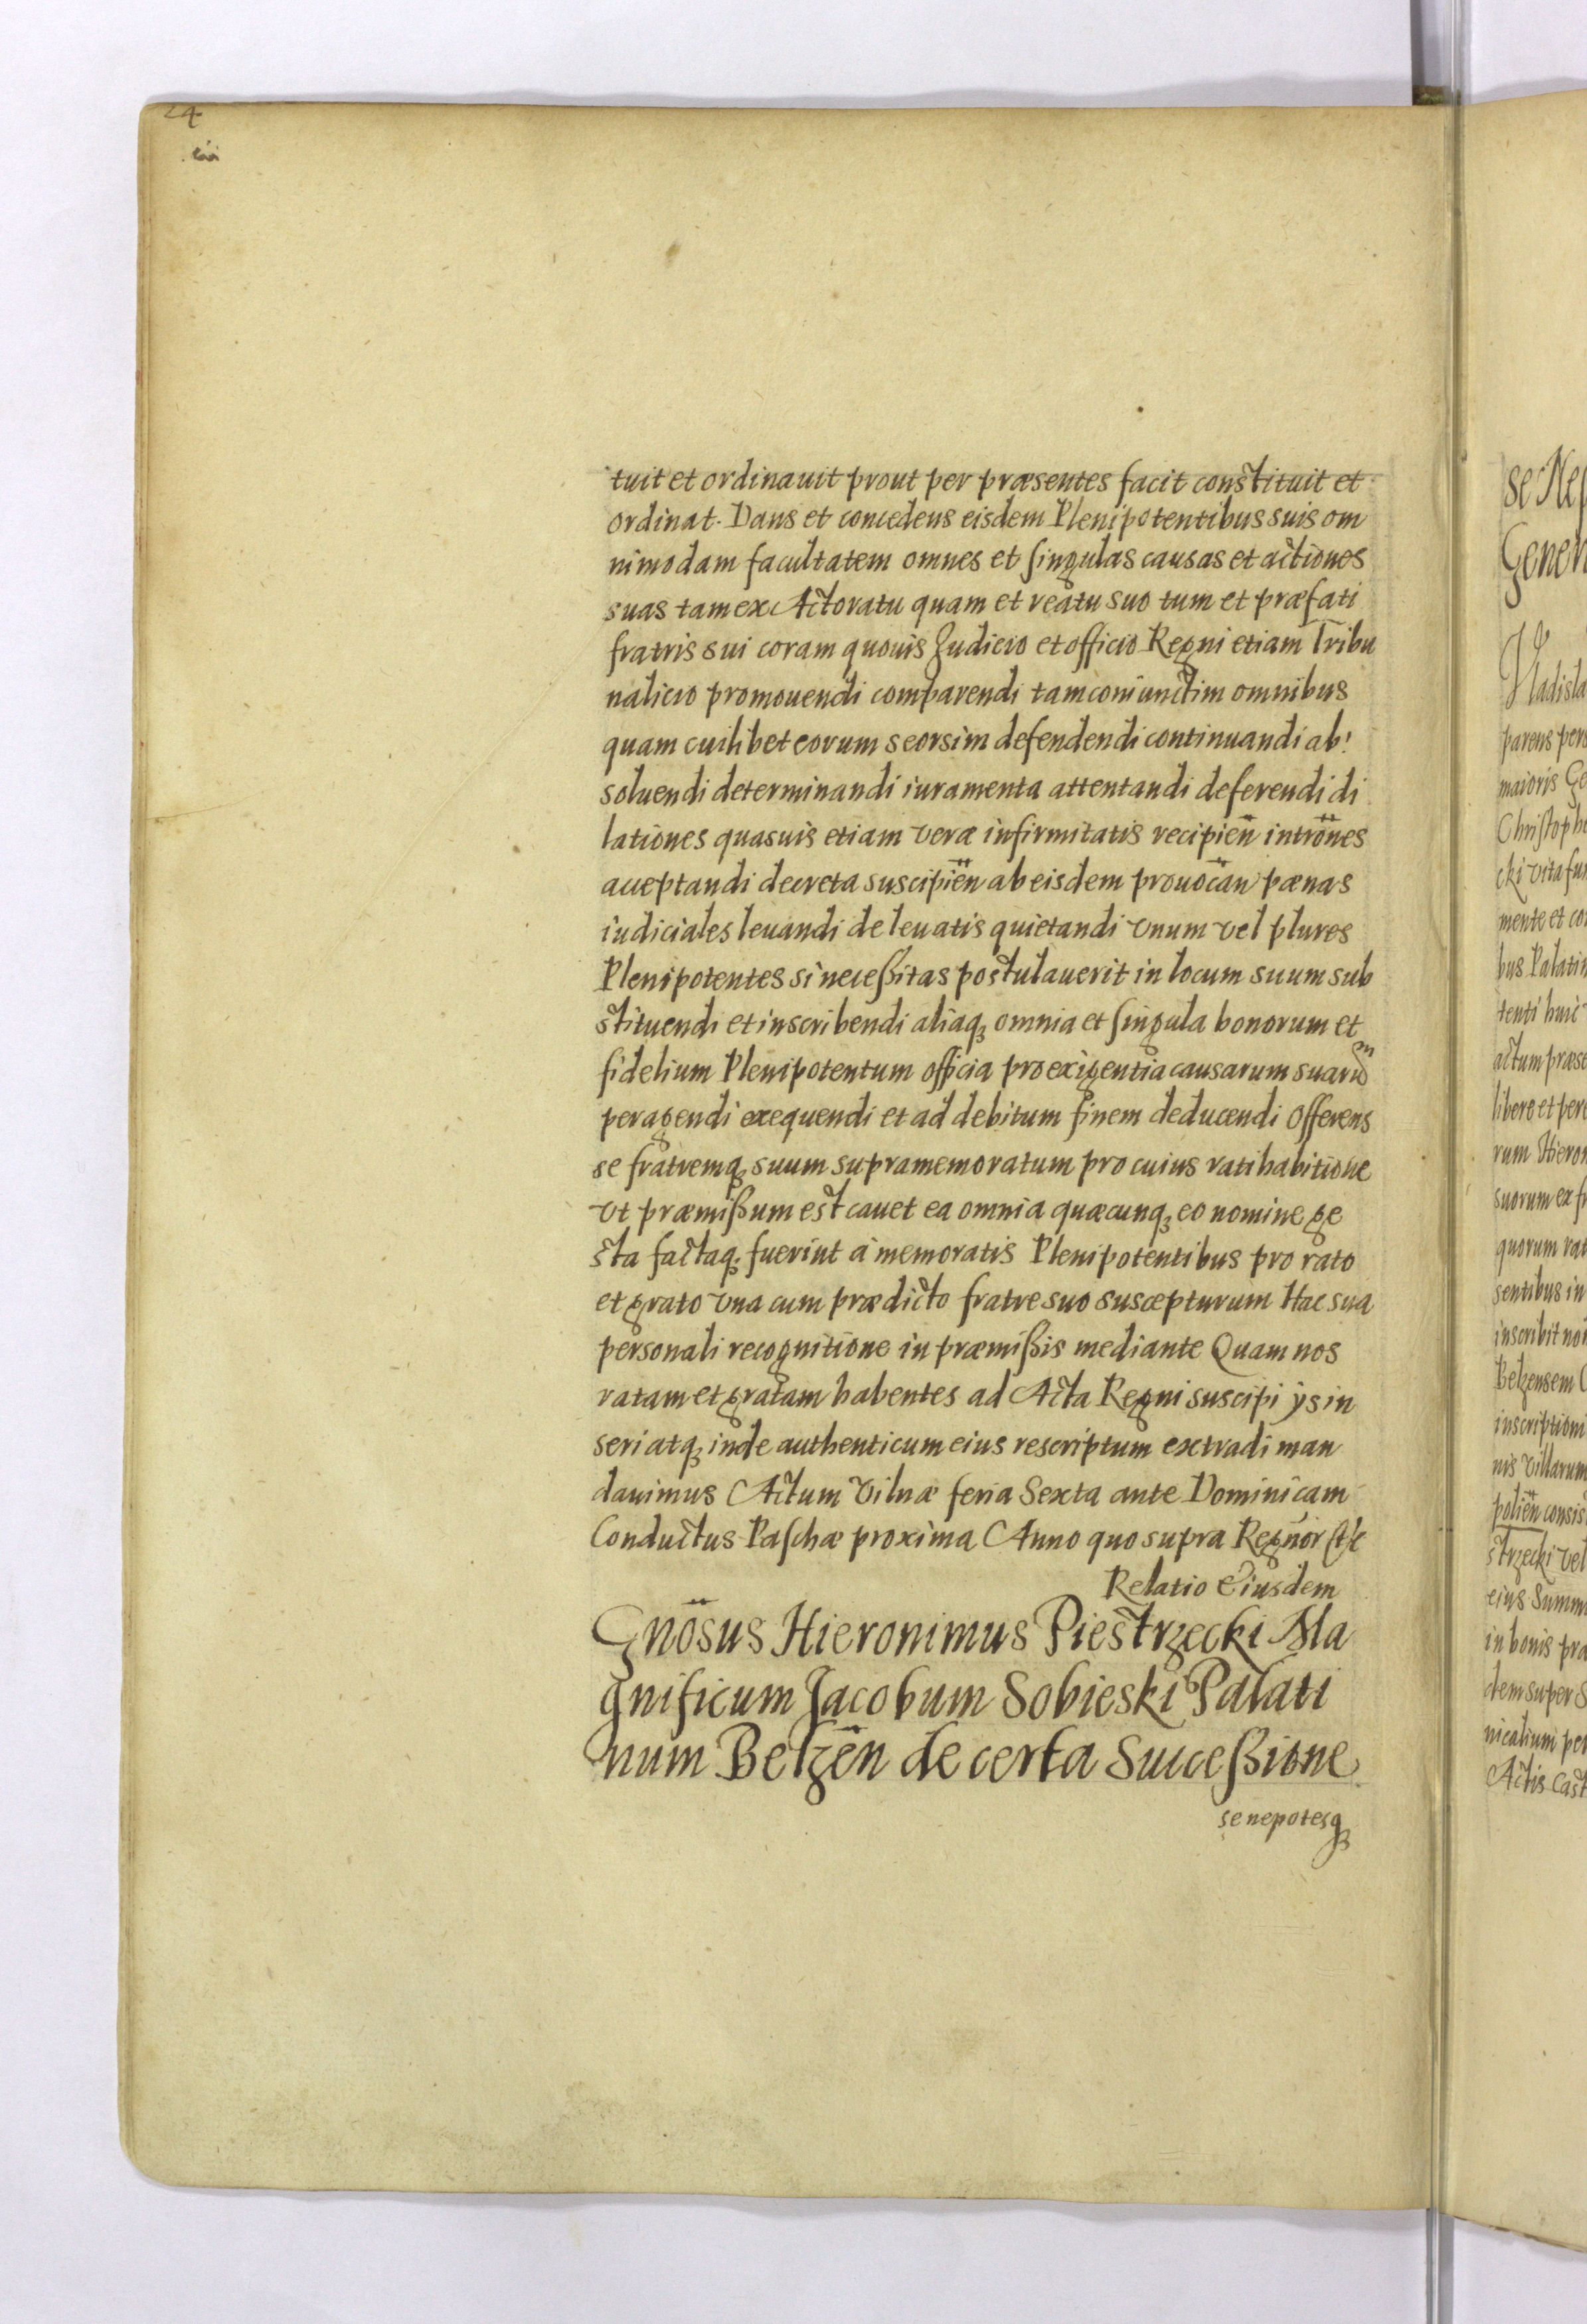 24
tuit et ordinauit prout per præsentes facit constituit et
ordinat. Dans et concedens eisdem Plenipotentibus suis om
nimodam facultatem omnes et singulas causas et actiones
suas tam ex Actoratu quam et reatu suo tum et præfati
fratris sui coram quouis Judicio et officio Regni etiam Tribu
nalicio promouendi comparendi tam coniunctim omnibus
quam cuilibet eorum seorsim defendendi continuandi ab
soluendi determinandi iuramenta attentandi deferendi di
lationes quasuis etiam veræ infirmitatis recipien̈ intrön̈es
acceptandi decreta suscipien̈ ab eisdem prouocan̈ pænas
iudiciales leuandi de leuatis quietandi vnum vel plures
Plenipotentes si neceßitas postulauerit in locum suum sub
stituendi et inscribendi aliaq₃ omnia et singula bonorum et
fidelium Plenipotentum officia pro exigentia causarum suarum
peragendi exequendi et ad debitum finem deducendi Offerens
se fratremq₃ suum supramemoratum pro cuius ratihabitione
vt præmißum est cauet ea omnia quæcunq₃ eo nomine ge
sta factaq₃ fuerint à memoratis Plenipotentibus pro rato
et grato vna cum prædicto fratre suo suscepturum Hac sua
personali recognitione in præmißis mediante Quam nos
ratam et gratam habentes ad Acta Regni suscipi ijs in
seri atq₃ inde authenticum eius rescriptum extradi man
dauimus Actum Vilnæ feria Sexta ante Dominicam
Conductus Paschæ proxima Anno quo supra Regnor
Relatio Eiusdem
Gnösus Hieronimus Piestrzecki Ma
gnificum Jacobum Sobieski Palati
num Belzen̈ de certa Succeßione
se nepotesq₃
se Nep
Gener
Vladisla
parens pers
maioris Ge
Christoph
cki vita fu
mente et co
bus Palatin
tenti huic
actum præse
libere et per
rum Hieron
suorum ex f
quorum rat
sentibus in
inscribit no
Belzensem
inscription
nis Villarum
polien̈ consis
strzecki vel
eius Summ
in bonis pra
dem super S
nicalium per
Actis Cast